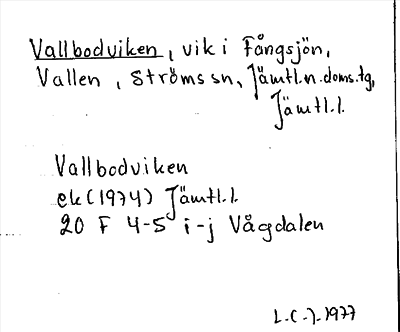 Vallbodviken, vik i Fångsjön,
Vallen, Ströms sn, Jämtl.n.doms.tg,
Jämtl.l.
Vallbodviken
ek (1974) Jämtl.l.
20 F 4-5 i-j Vågdalen
L.C.J.1977